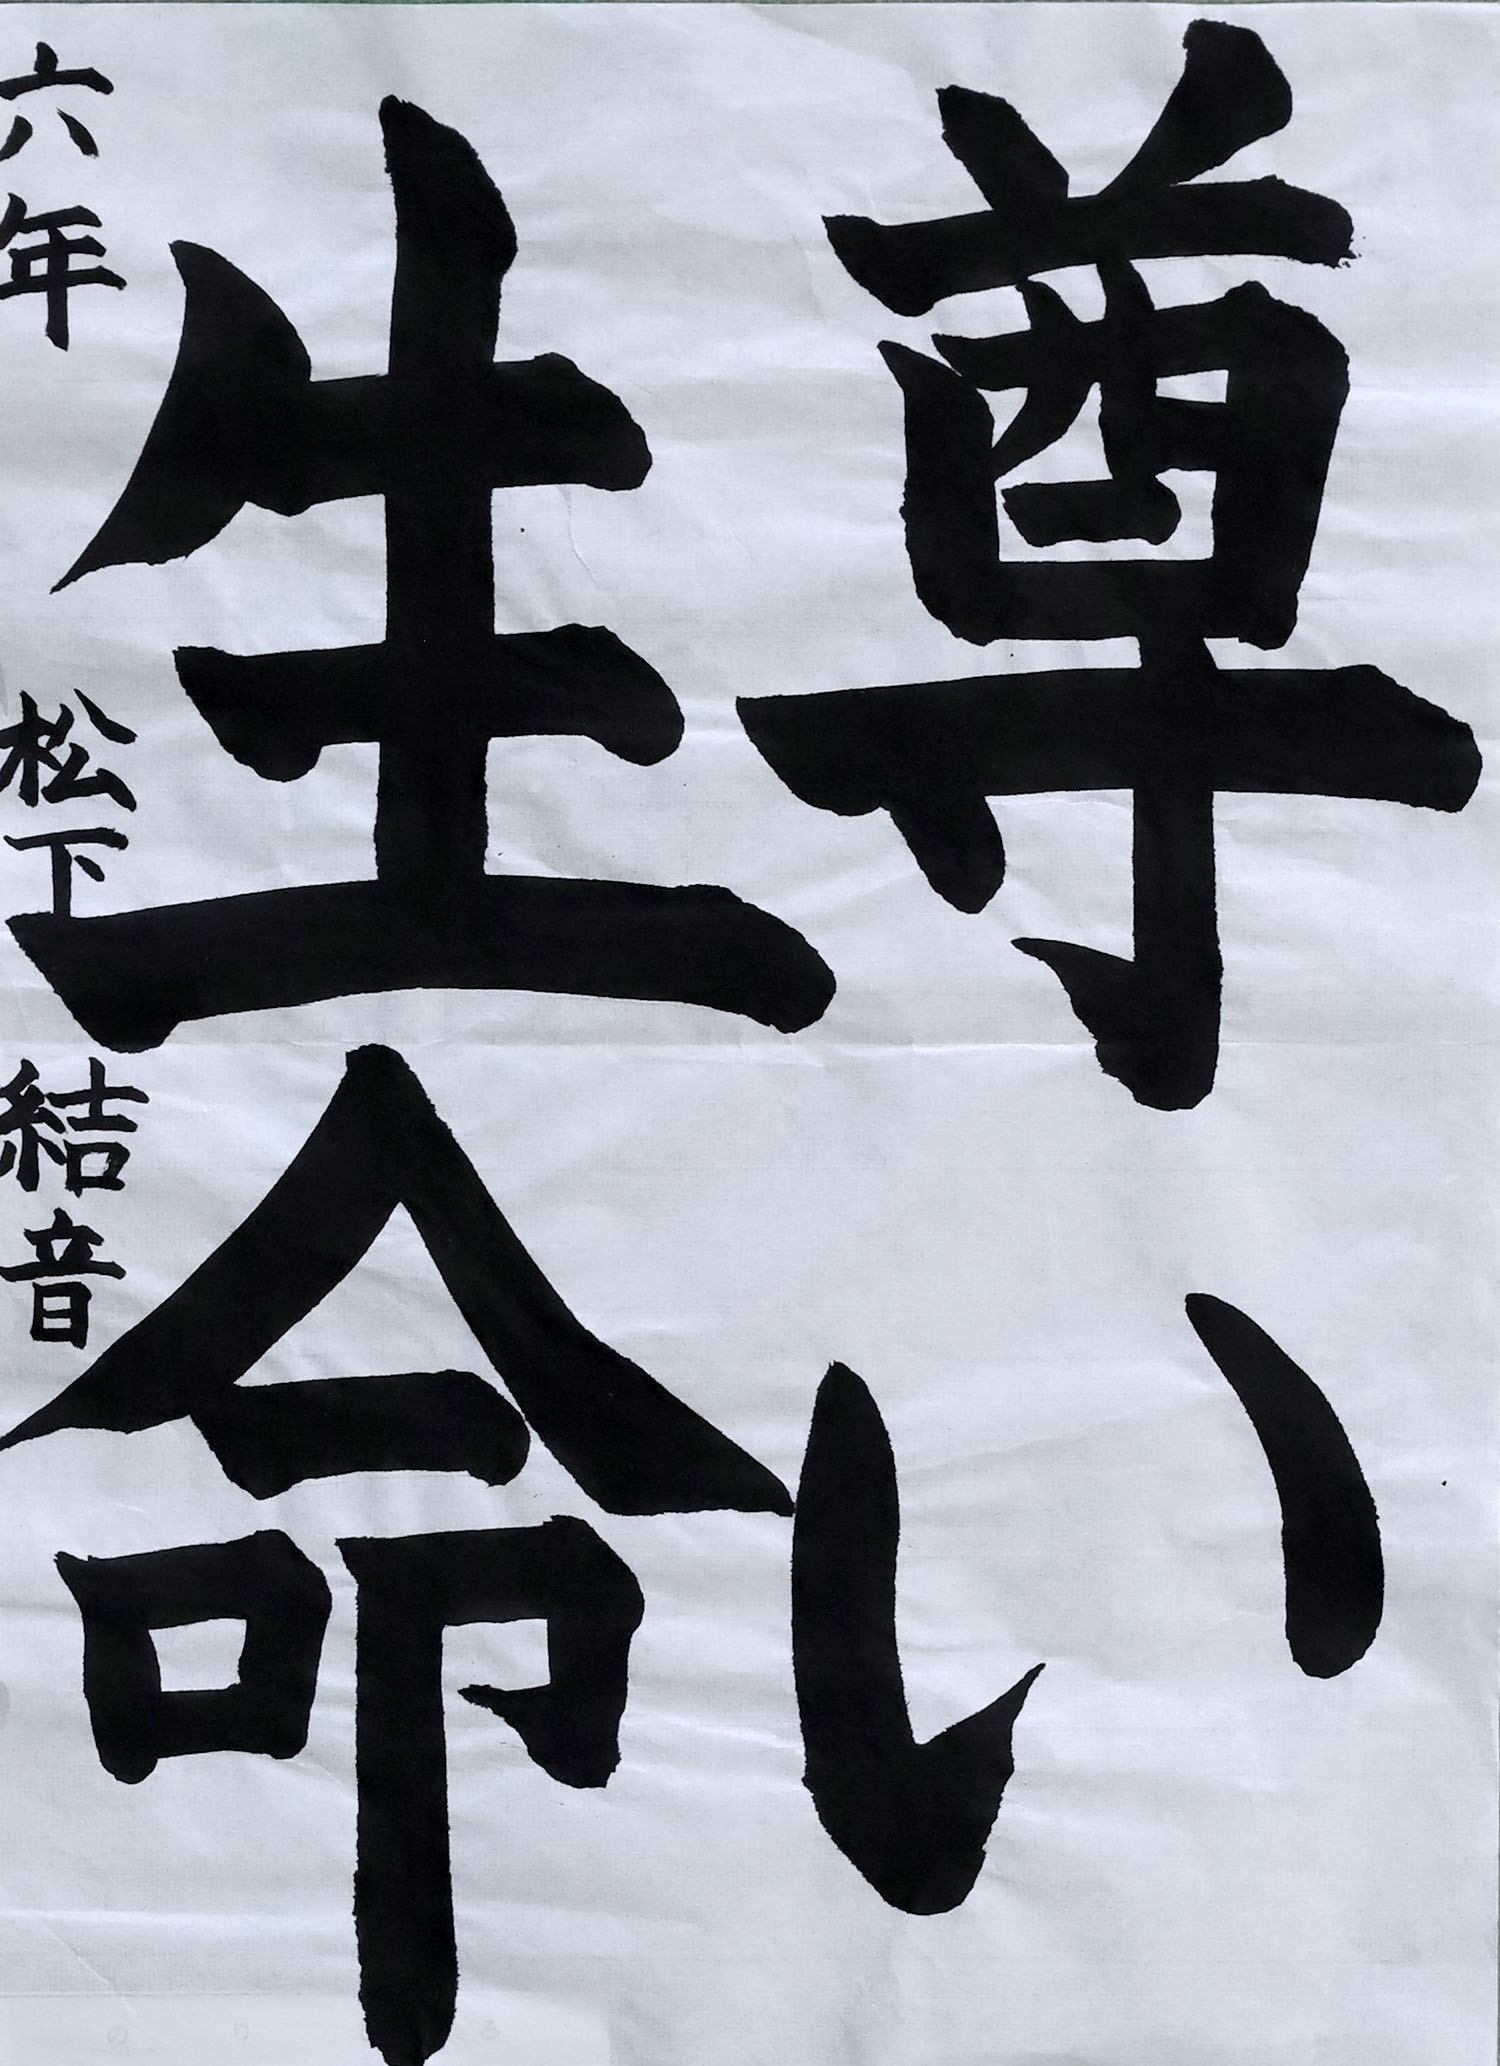 尊い
生命
六年 松下結音